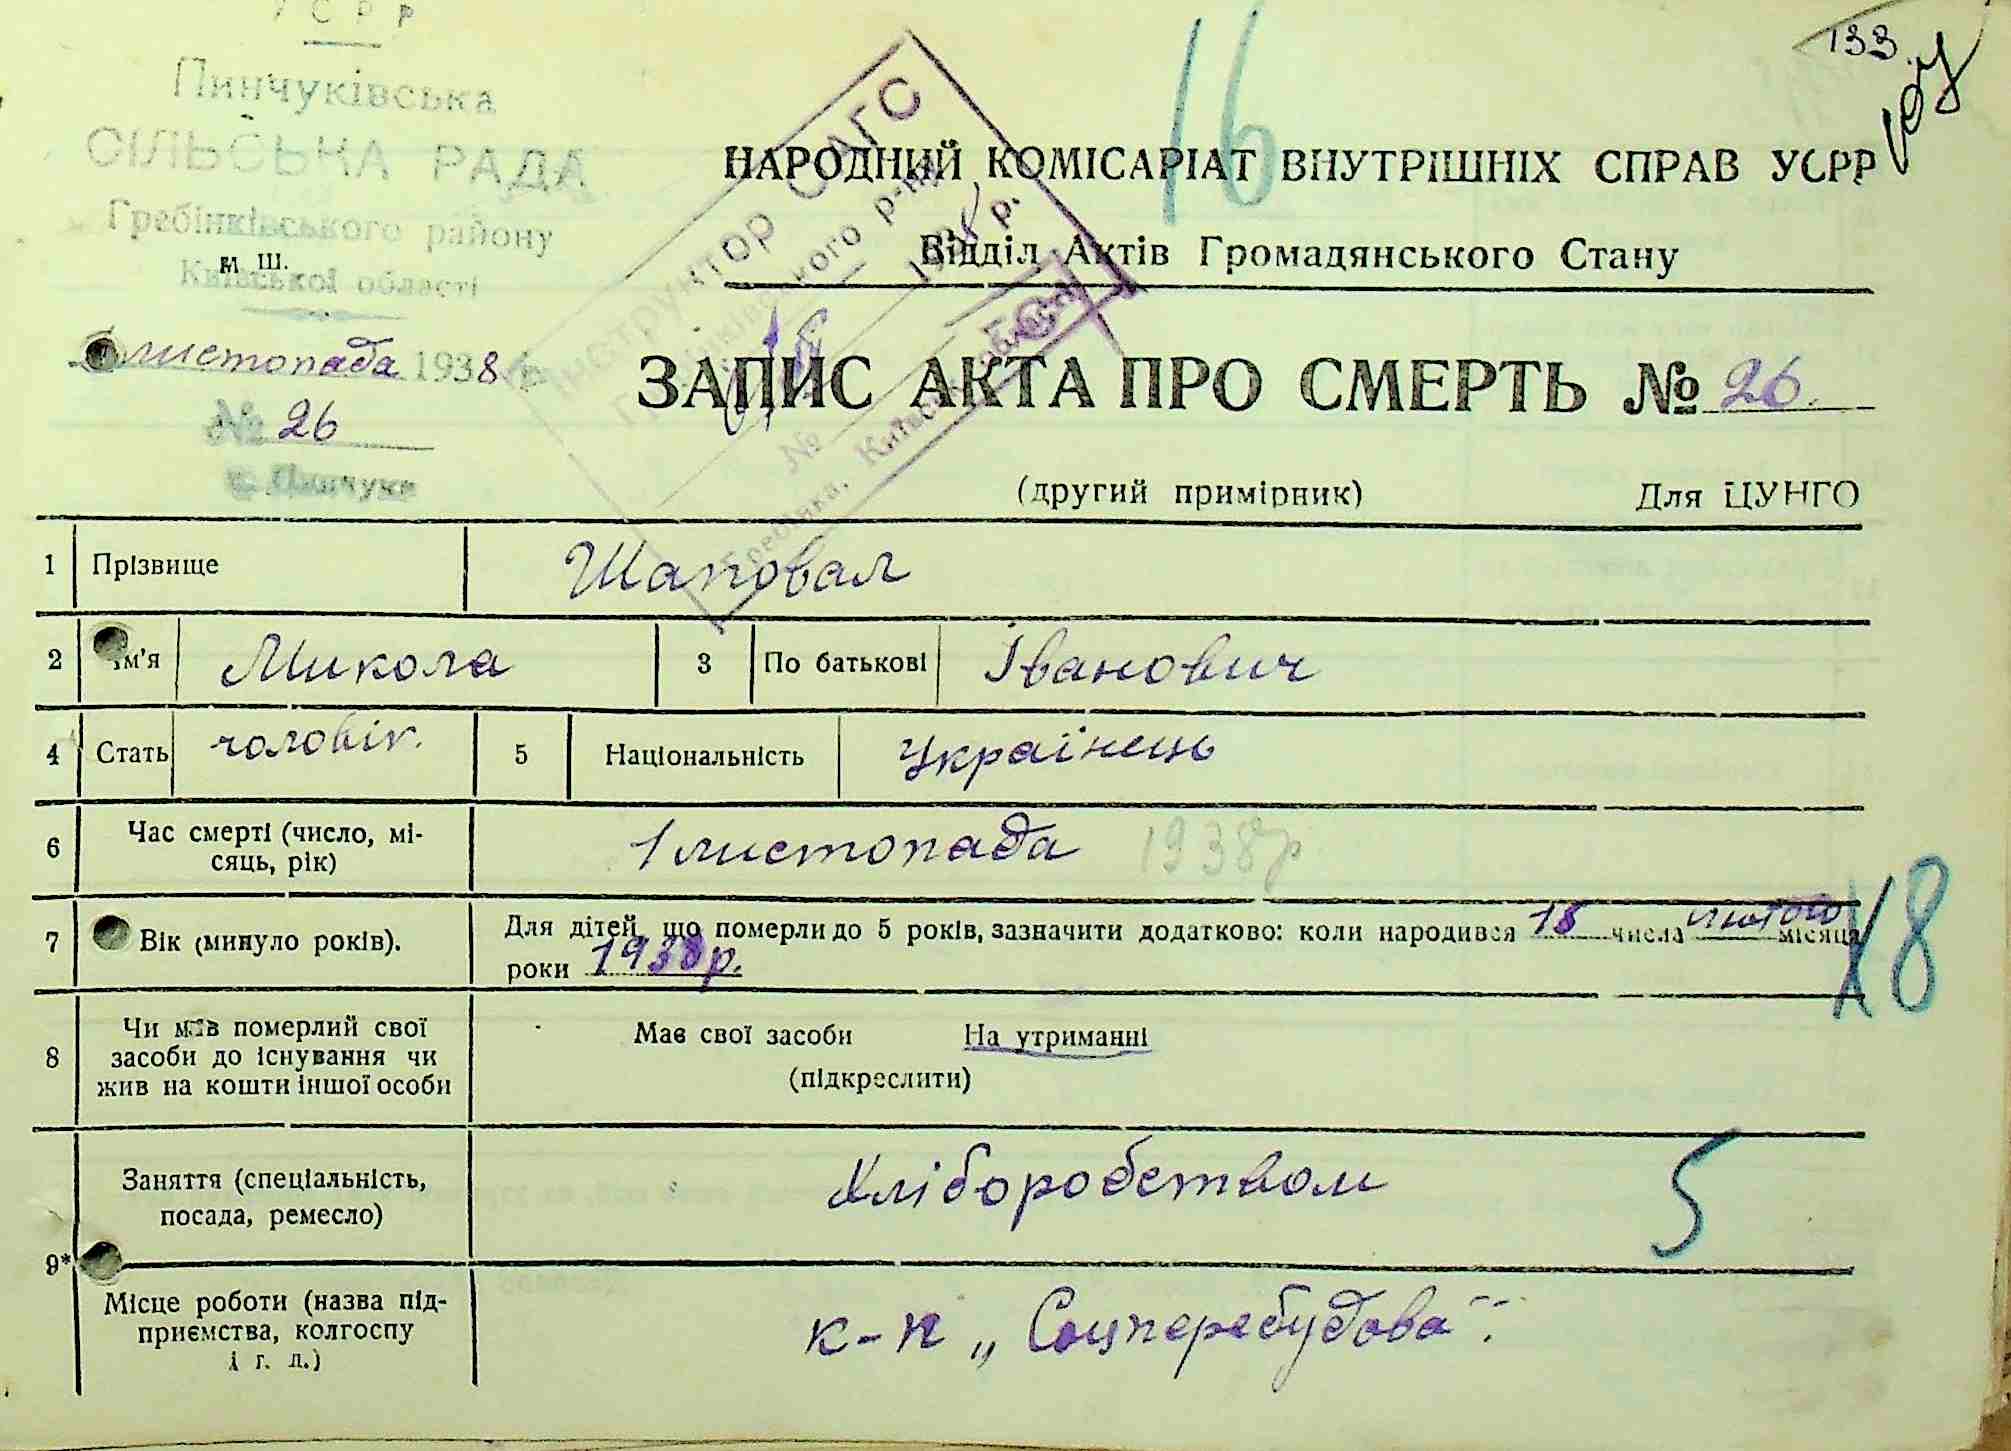 УСРР
Пинчуківська
СІЛЬСЬКА РАДА
Гребінківського району
м ш.
Київської області
листопада 1938 р
№ 26
с. Пинчуки
16
133
Інструктор ОАГС
Гребінківського р-ну
1938 р.
№
Гребінка, Київської області
НАРОДНИЙ КОМІСАРІАТ ВНУТРІШНІХ СПРАВ УСРР
Відділ Актів Громадянського Стану
ЗАПИС АКТА ПРО СМЕРТЬ № 26.
(другий примірник) Для ЦУНГО
1 Прізвище Шаповал
2 Ім'я Микола 3 По батькові Іванович
4 Стать чоловік. 5 Національність Українець
6 Час смерті (число, мі-
сяць, рік) 1 листопада 1938р
7 Вік (минуло років). Для дітей, що померли до 5 років, зазначити додатково: коли народився 18 числа лютого місяця
роки 1938р.
18
8 Чи мав померлий свої
засоби до існування чи
жив на кошти іншої особи
Має свої засоби На утриманні
(підкреслити)
9* Заняття (спеціальність,
посада, ремесло) Хліборобством 5
Місце роботи (назва під-
приємства, колгоспу
і г. л.) к-п „Соцперебудова".